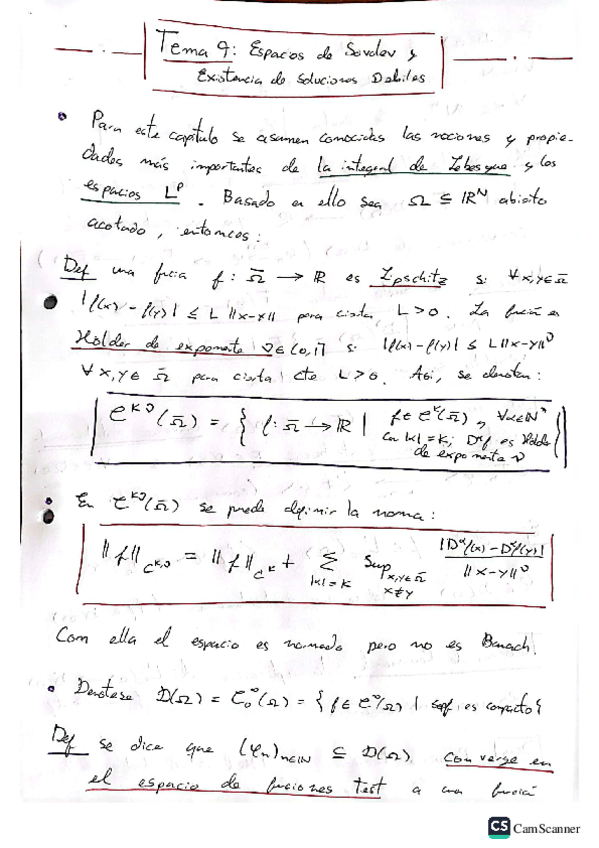 Tema 9: Espacios de Sovolev y
Existencia de Soluciones Debiles
• Para este capítulo se asumen conocidas las nociones y propie-
dades más importantes de la integral de Lebesgue y los
espacios L^p. Basado en ello sea Ω ⊆ ℝ^N abierto
acotado, entonces:
Def una función f: Ω̄ → ℝ es Lipschitz si ∀x,y∈Ω̄
|f(x) - f(y)| ≤ L ||x-y|| para cierta L>0. La función es
Hölder de exponente ν∈(0,1] si |f(x)-f(y)| ≤ L||x-y||^ν
∀x,y∈Ω̄ para cierta cte L>0. Así, se denotan:
C^{k,ν}(Ω̄) = { f: Ω̄ → ℝ | f∈C^k(Ω̄), ∀α∈ℕ^n
con |α|=k, D^αf es Hölder
de exponente ν }
• En C^{k,ν}(Ω̄) se puede definir la norma:
||f||_{C^{k,ν}} = ||f||_{C^k} + Σ_{|α|=k} Sup_{x,y∈Ω̄ x≠y} |D^αf(x) - D^αf(y)| / ||x-y||^ν
Con ella el espacio es normado pero no es Banach.
• Denotese D(Ω) = C_0^∞(Ω) = { f∈C^∞(Ω) | sopf es compacto}
Def se dice que (φ_n)_{n∈ℕ} ⊆ D(Ω) converge en
el espacio de funciones test a una función
CS CamScanner